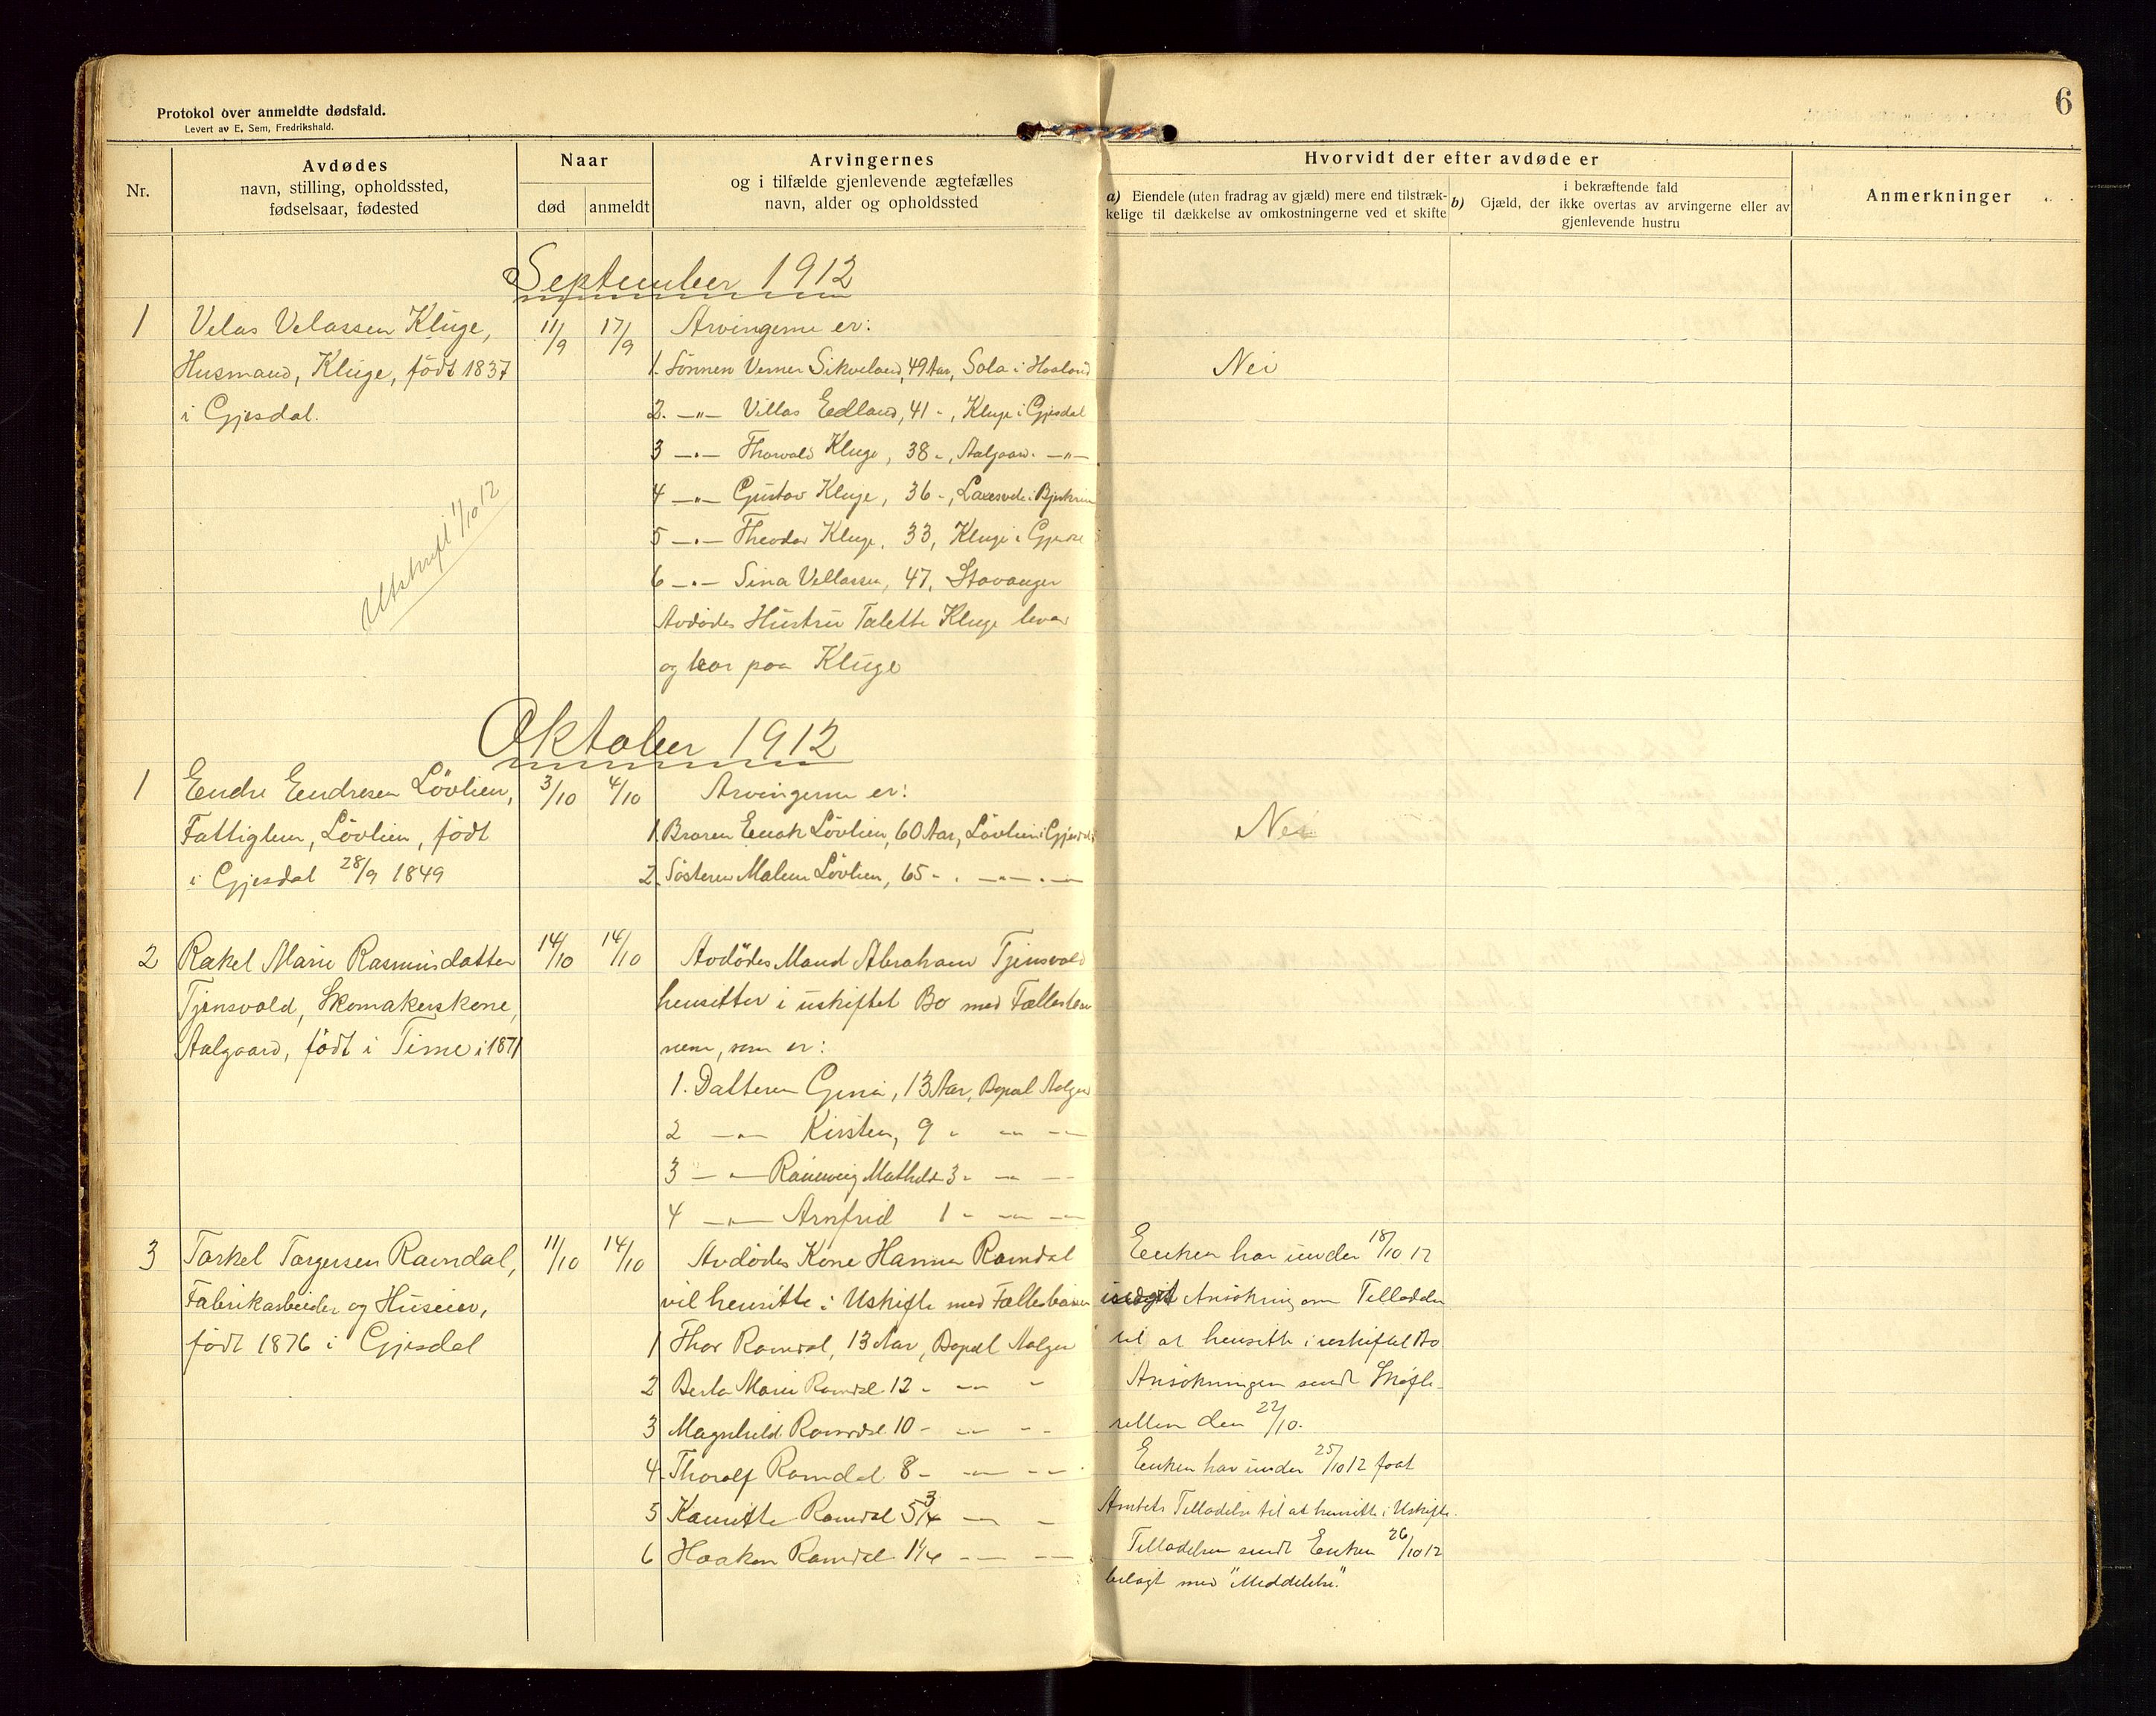 Protokol over anmeldte dødsfald.
Levert av E. Sem, Fredrikshald.
6
Nr.
Avdødes
navn, stilling, opholdssted,
fødselsaar, fødested
Naar
død
anmeldt
Arvingernes
og i tilfælde gjenlevende ægtefælles
navn, alder og opholdssted
Hvorvidt der efter avdøde er
a) Eiendele (uten fradrag av gjæld) mere end tilstræk-
kelige til dækkelse av omkostningerne ved et skifte
i bekræftende fald
b) Gjæld, der ikke overtas av arvingerne eller av
gjenlevende hustru
Anmerkninger
September 1912
1
Velas Velassen Kluge,
Husmand, Kluge, født 1837
i Gjesdal.
11/9
17/9
Arvingerne er:
1. Sönnen Verner Sikveland, 49 Aar, Sola i Haaland
2. —"— Villas Edland, 41 -, Kluge i Gjesdal
3 —"— Thorvald Kluge, 38 -, Aalgaard. —"—
4 —"— Gustav Kluge, 36 -, i Bjerkrim
5 —"— Theodor Kluge, 33, Kluge i
6 —"— Sina Vellassen, 47, Stavanger
Avdødes Hustru Talette Kluge lever
og bor paa Kluge
Nei
Utskrift 1/10 12
Oktober 1912
1
Endre Endresen Lövlien,
Fattiglem, Lövlien, födt
i Gjesdal 28/9 1849
3/10
4/10
Arvingerne er:
1. Broren Enok Lövlien, 60 Aar, Lövlien i Gjesdal
2. Søsteren Malene Lövlien, 65 - . —"—"—
Nei
2
Rakel Marie Rasmusdatter
Tjensvold, Skomakerskone,
Aalgaard, födt i Time i 1871
14/10
14/10
Avdödes Mand Abraham Tjensvold
hensitter i uskiftet Bo med Fællesbør
nene, som er:
1. Datteren Gina, 13 Aar, Bopæl Aalgaard
2 —"— Kirsten, 9 " —"— —
3 —"— Mathilde 3 " —"— —
4 —"— Arnfrid 1 " —"— —
3
Torkel Torgersen Ravndal,
Fabrikarbeider og Huseier,
födt 1876 i Gjesdal
11/10
14/10
Avdødes Kone Hanna Ravndal
vil hensitte i Uskifte med Fællesbarn
1 Thor Ravndal, 13 Aar, Bopæl Aalgaard
2 Berta Marie Ravndal 12 - —"— -
3 Magnhild Ravndal 10 - —"— -
4. Thorolf Ravndal 8 - —"— -
5 Ravndal 5 3/4 —"— -
6 Haakon Ravndal 1 1/4 —"— —
Enken har under 18/10 12
Ansökning om Tilladelse
til at hensitte i uskiftet Bo
Ansökningen sendt Skifte-
retten den 22/10.
Enken har under 25/10 12 faat
Amtets Tilladelse til at hensitte i Uskifte.
Tilladelsen sendt Enken 26/10 12
belagt med "Meddelelse".